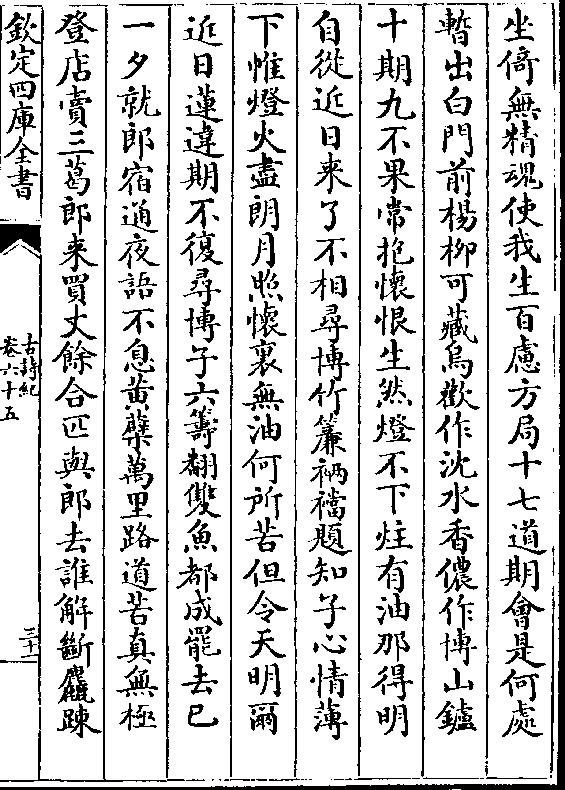 坐倚無精魂使我生百慮方局十七道期會是何處
暫出白門前楊栁可藏烏歡作沈水香儂作博山鑪
十期九不果常抱懷恨生然燈不下炷有油那得明
自從近日来了不相尋博竹簾裲襠題知子心情薄
下帷燈火盡朗月照懷裏無油何所苦但令天明爾
近日蓮違期不復尋博子六籌翻雙魚都成罷去已
一夕就郎宿通夜語不息黄蘗萬里路道苦真無極
登店賣三葛郎来買丈餘合匹與郎去誰解斷麤踈
欽定四庫全書
古詩紀
卷六十五
三十一